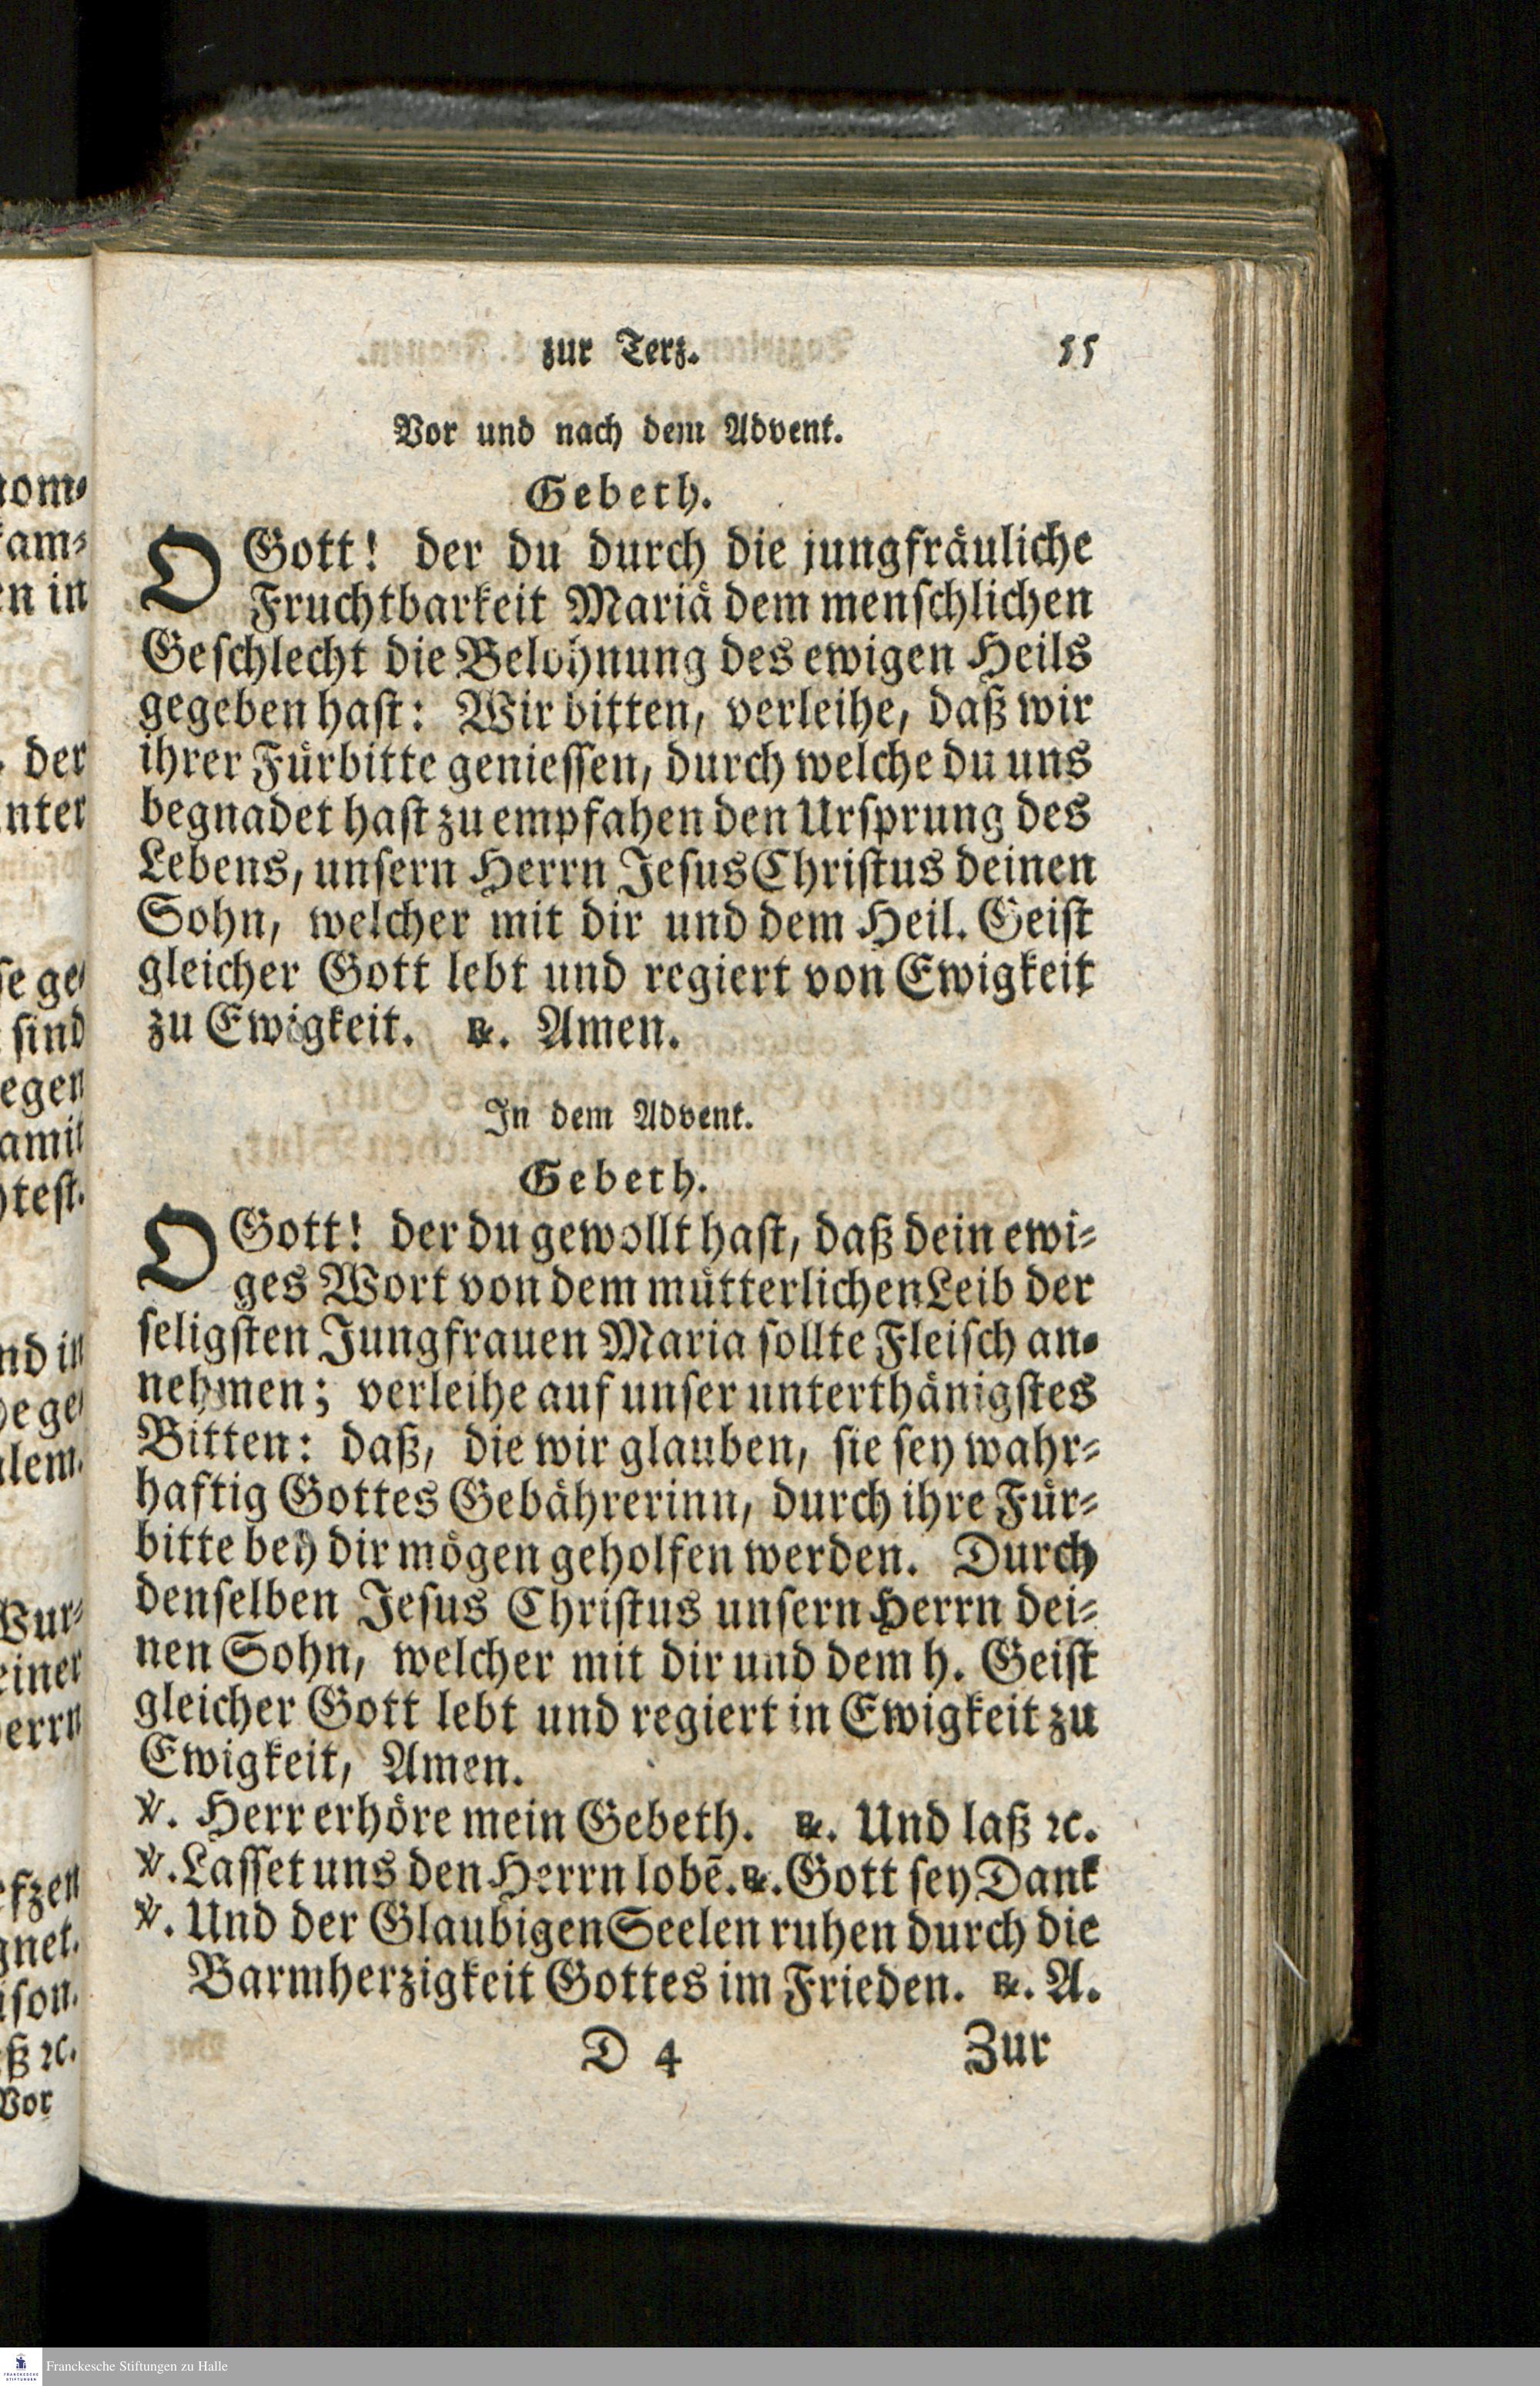 zur Terz. 55
Vor und nach dem Advent.
Gebeth.
O Gott! der du durch die jungfräuliche
Fruchtbarkeit Mariä dem menschlichen
Geschlecht die Belohnung des ewigen Heils
gegeben hast: Wir bitten, verleihe, daß wir
ihrer Fürbitte geniessen, durch welche du uns
begnadet hast zu empfahen den Ursprung des
Lebens, unsern Herrn Jesus Christus deinen
Sohn, welcher mit dir und dem Heil. Geist
gleicher Gott lebt und regiert von Ewigkeit
zu Ewigkeit. ℟. Amen.
In dem Advent.
Gebeth.
O Gott! der du gewollt hast, daß dein ewi-
ges Wort von dem mütterlichen Leib der
seligsten Jungfrauen Maria sollte Fleisch an-
nehmen; verleihe auf unser unterthänigstes
Bitten: daß, die wir glauben, sie sey wahr-
haftig Gottes Gebährerinn, durch ihre Für-
bitte bey dir mögen geholfen werden. Durch
denselben Jesus Christus unsern Herrn dei-
nen Sohn, welcher mit dir und dem h. Geist
gleicher Gott lebt und regiert in Ewigkeit zu
Ewigkeit, Amen.
℣. Herr erhöre mein Gebeth. ℟. Und laß ꝛc.
℣. Lasset uns den Herrn lobē. ℟. Gott sey Dank
℣. Und der Glaubigen Seelen ruhen durch die
Barmherzigkeit Gottes im Frieden. ℟. A.
D 4 Zur
Franckesche Stiftungen zu Halle